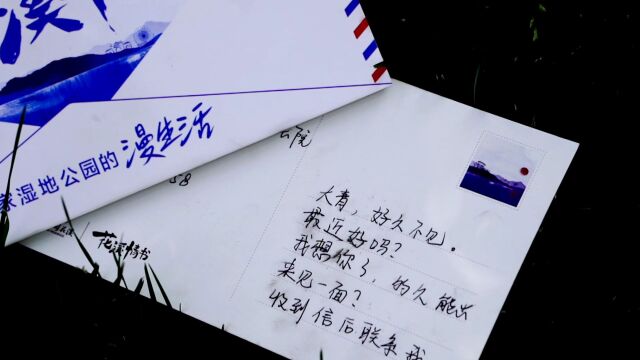 溪
家湿地公园的漫生活
公院
58
花溪情书
大青，好久不见。
最近好吗？
我想你了，的久能出
来见一面？
收到信后联系我